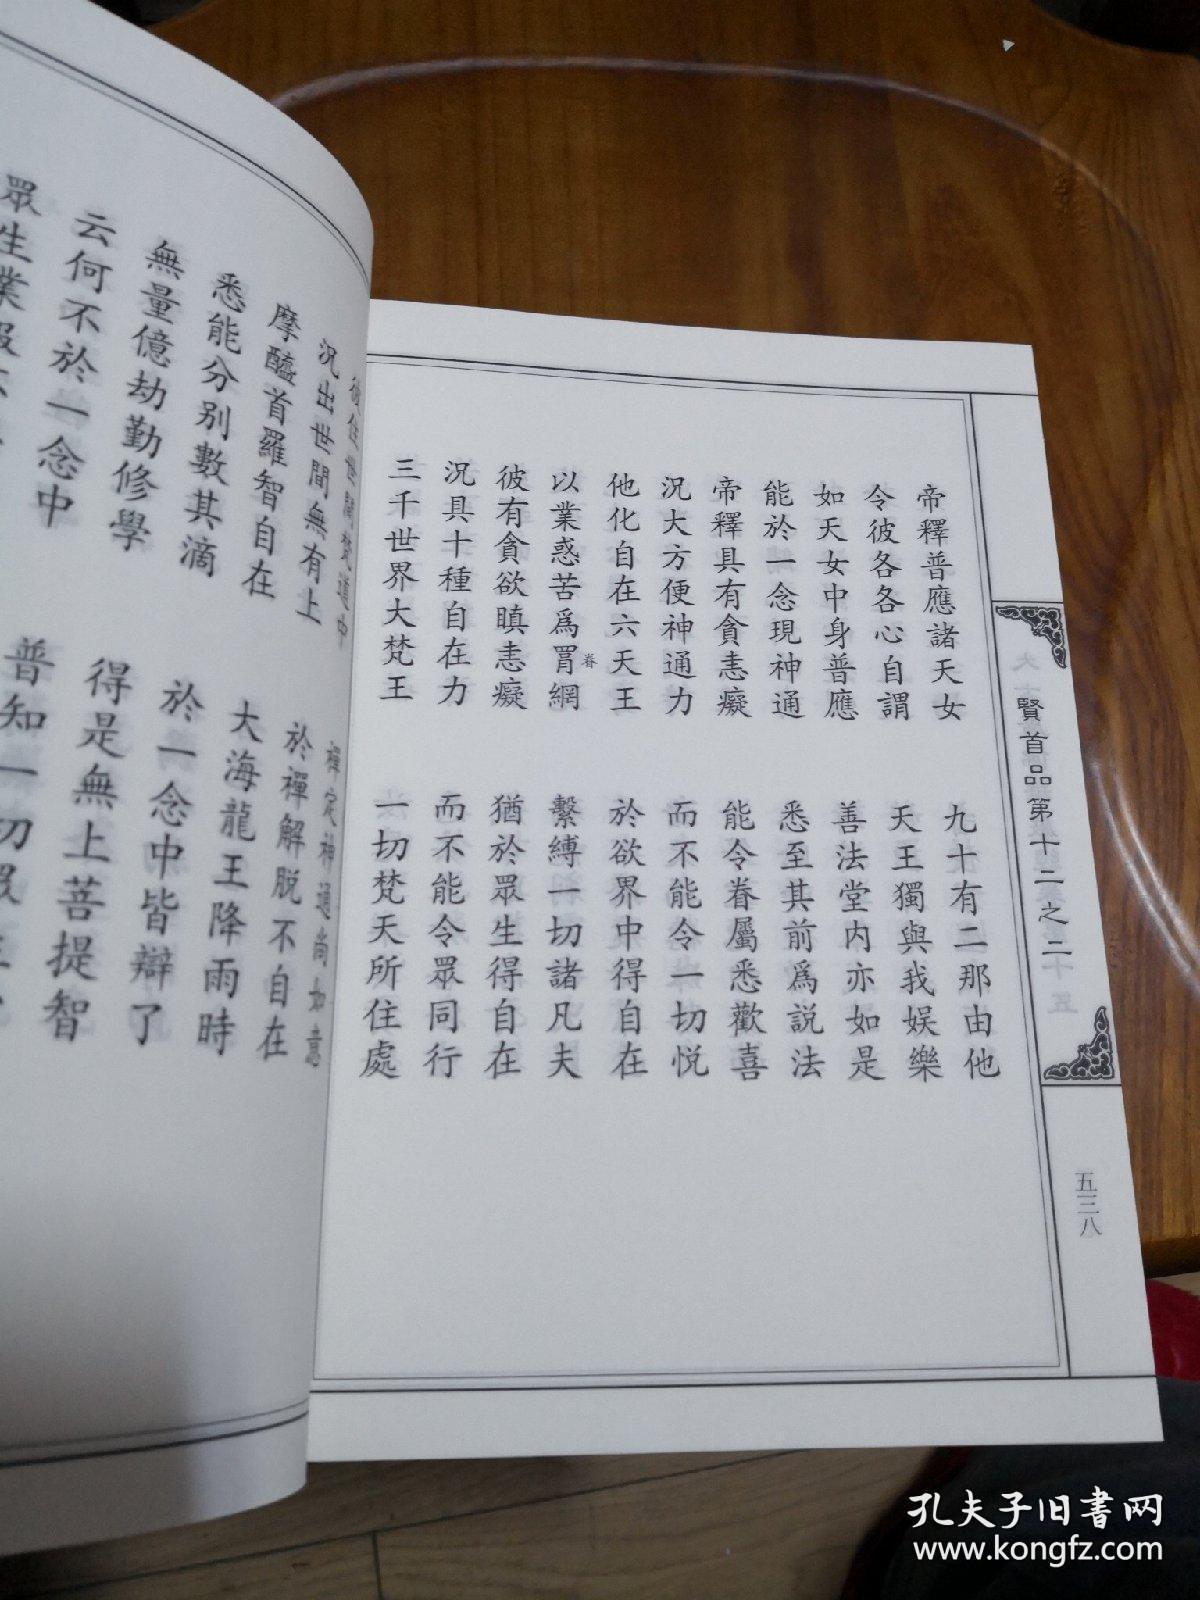 帝釋普應諸天女　九十有二那由他
令彼各各心自謂　天王獨與我娛樂
如天女中身普應　善法堂內亦如是
能於一念現神通　悉至其前爲説法
帝釋具有貪恚癡　能令眷屬悉歡喜
況大方便神通力　而不能令一切悦
他化自在六天王　於欲界中得自在
以業惑苦爲罥網　繫縛一切諸凡夫
彼有貪欲瞋恚癡　猶於眾生得自在
況具十種自在力　而不能令眾同行
三千世界大梵王　一切梵天所住處
賢首品第十二之二
五三八
彼住世間梵道中　禪定神通尚如意
況出世間無有上　於禪解脱不自在
摩醯首羅智自在　大海龍王降雨時
悉能分別數其滴　於一念中皆辯了
無量億劫勤修學　得是無上菩提智
云何不於一念中　普知一切眾
眾生業報
孔夫子旧书网
www.kongfz.com